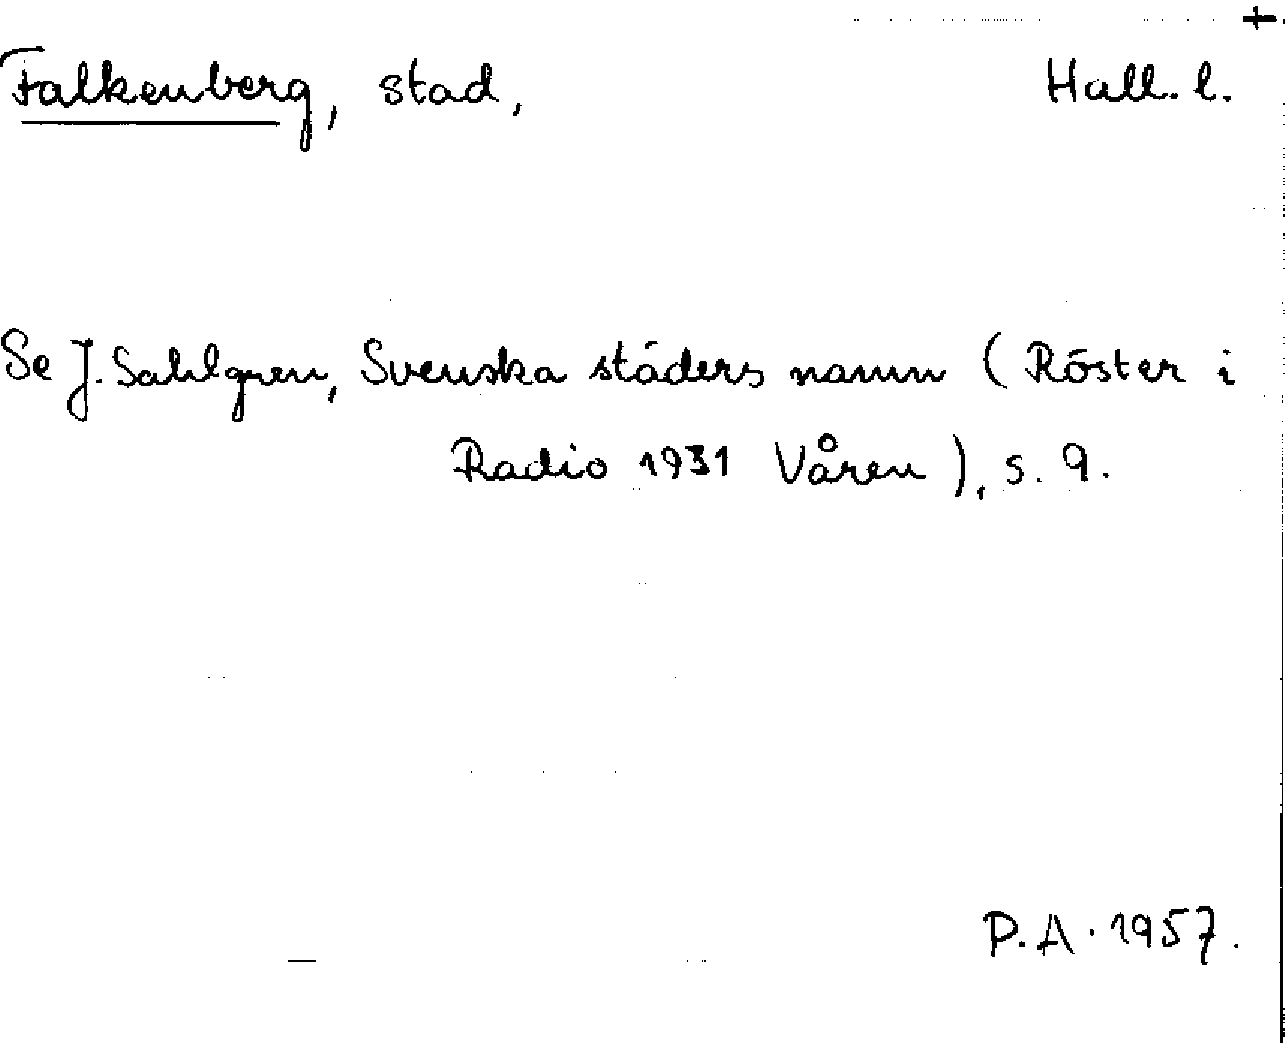 Falkenberg, stad, Hall. l.
Se J. Sahlgren, Svenska städers namn (Röster i
Radio 1931 Våren), s. 9.
P.A. 1957.